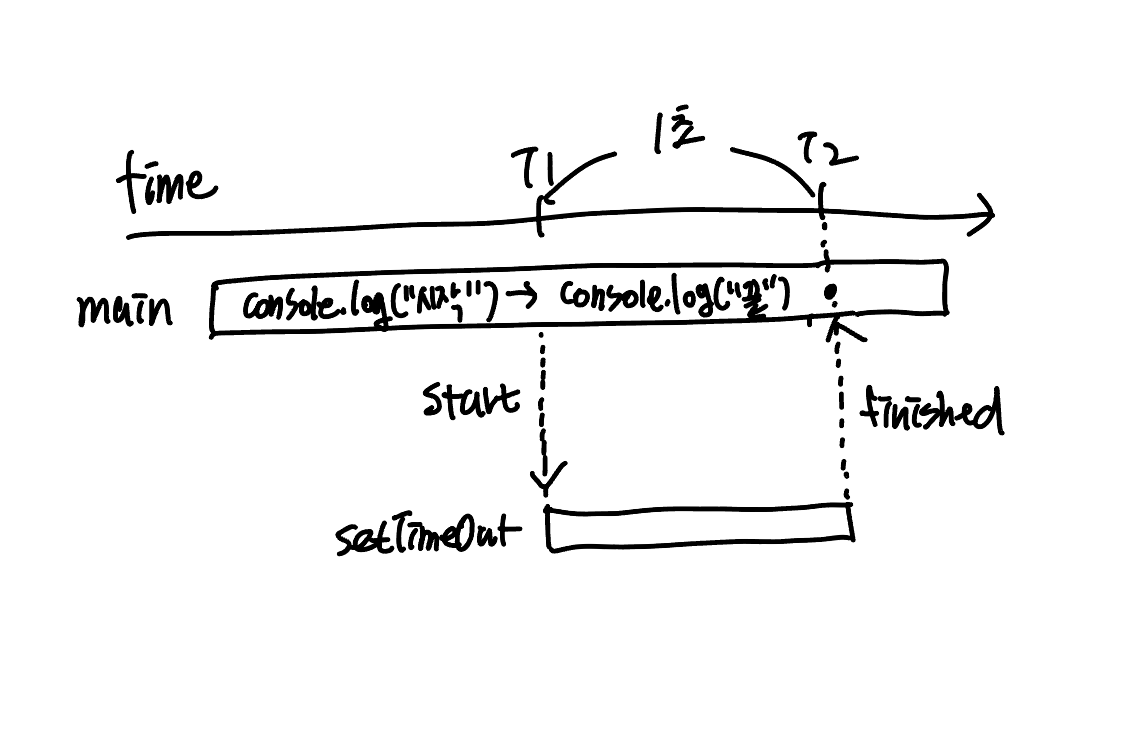 1초
time T1 T2
main console.log("시작") → console.log("끝")
start finished
setTimeOut